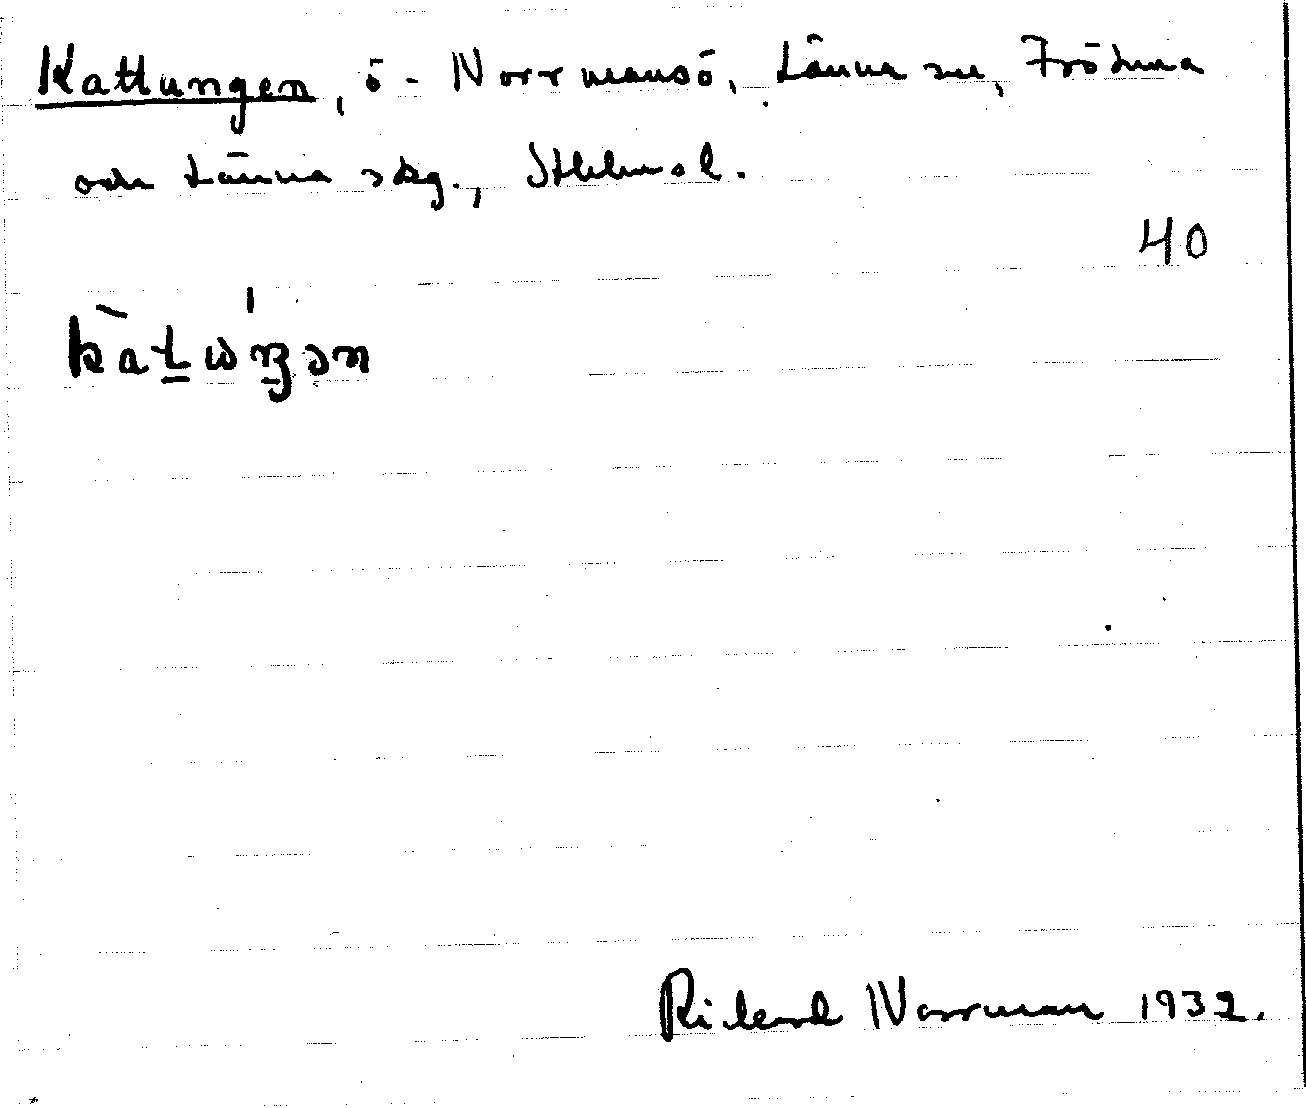 Kattungen, ö - Norrmansö, Länna sn, Frötuna
och Länna skg., Sthlmsl.
40
Rikard Norrman 1932.